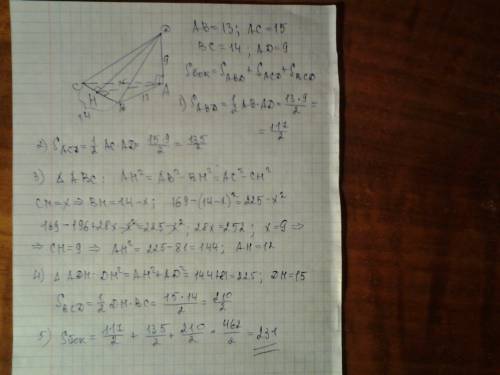 AB=13; AC=15
BC=14; AD=9
Sбок=S_ABD+S_ACD+S_BCD
D
9
C
H
A
B
13
14
1) S_ABD=1/2 AB·AD=13·9/2=
=117/2
2) S_ACD=1/2 AC·AD=15·9/2=135/2
3) △ABC: AH²=AB²-BH²=AC²-CH²
CH=x⇒BH=14-x; 169-(14-x)²=225-x²
169-196+28x-x²=225-x²; 28x=252; x=9⇒
⇒CH=9⇒ AH²=225-81=144; AH=12
4) △ADH: DH²=AH²+AD²=144+81=225; DH=15
S_BCD=1/2 DH·BC=15·14/2=210/2
5) Sбок=117/2+135/2+210/2=462/2=231